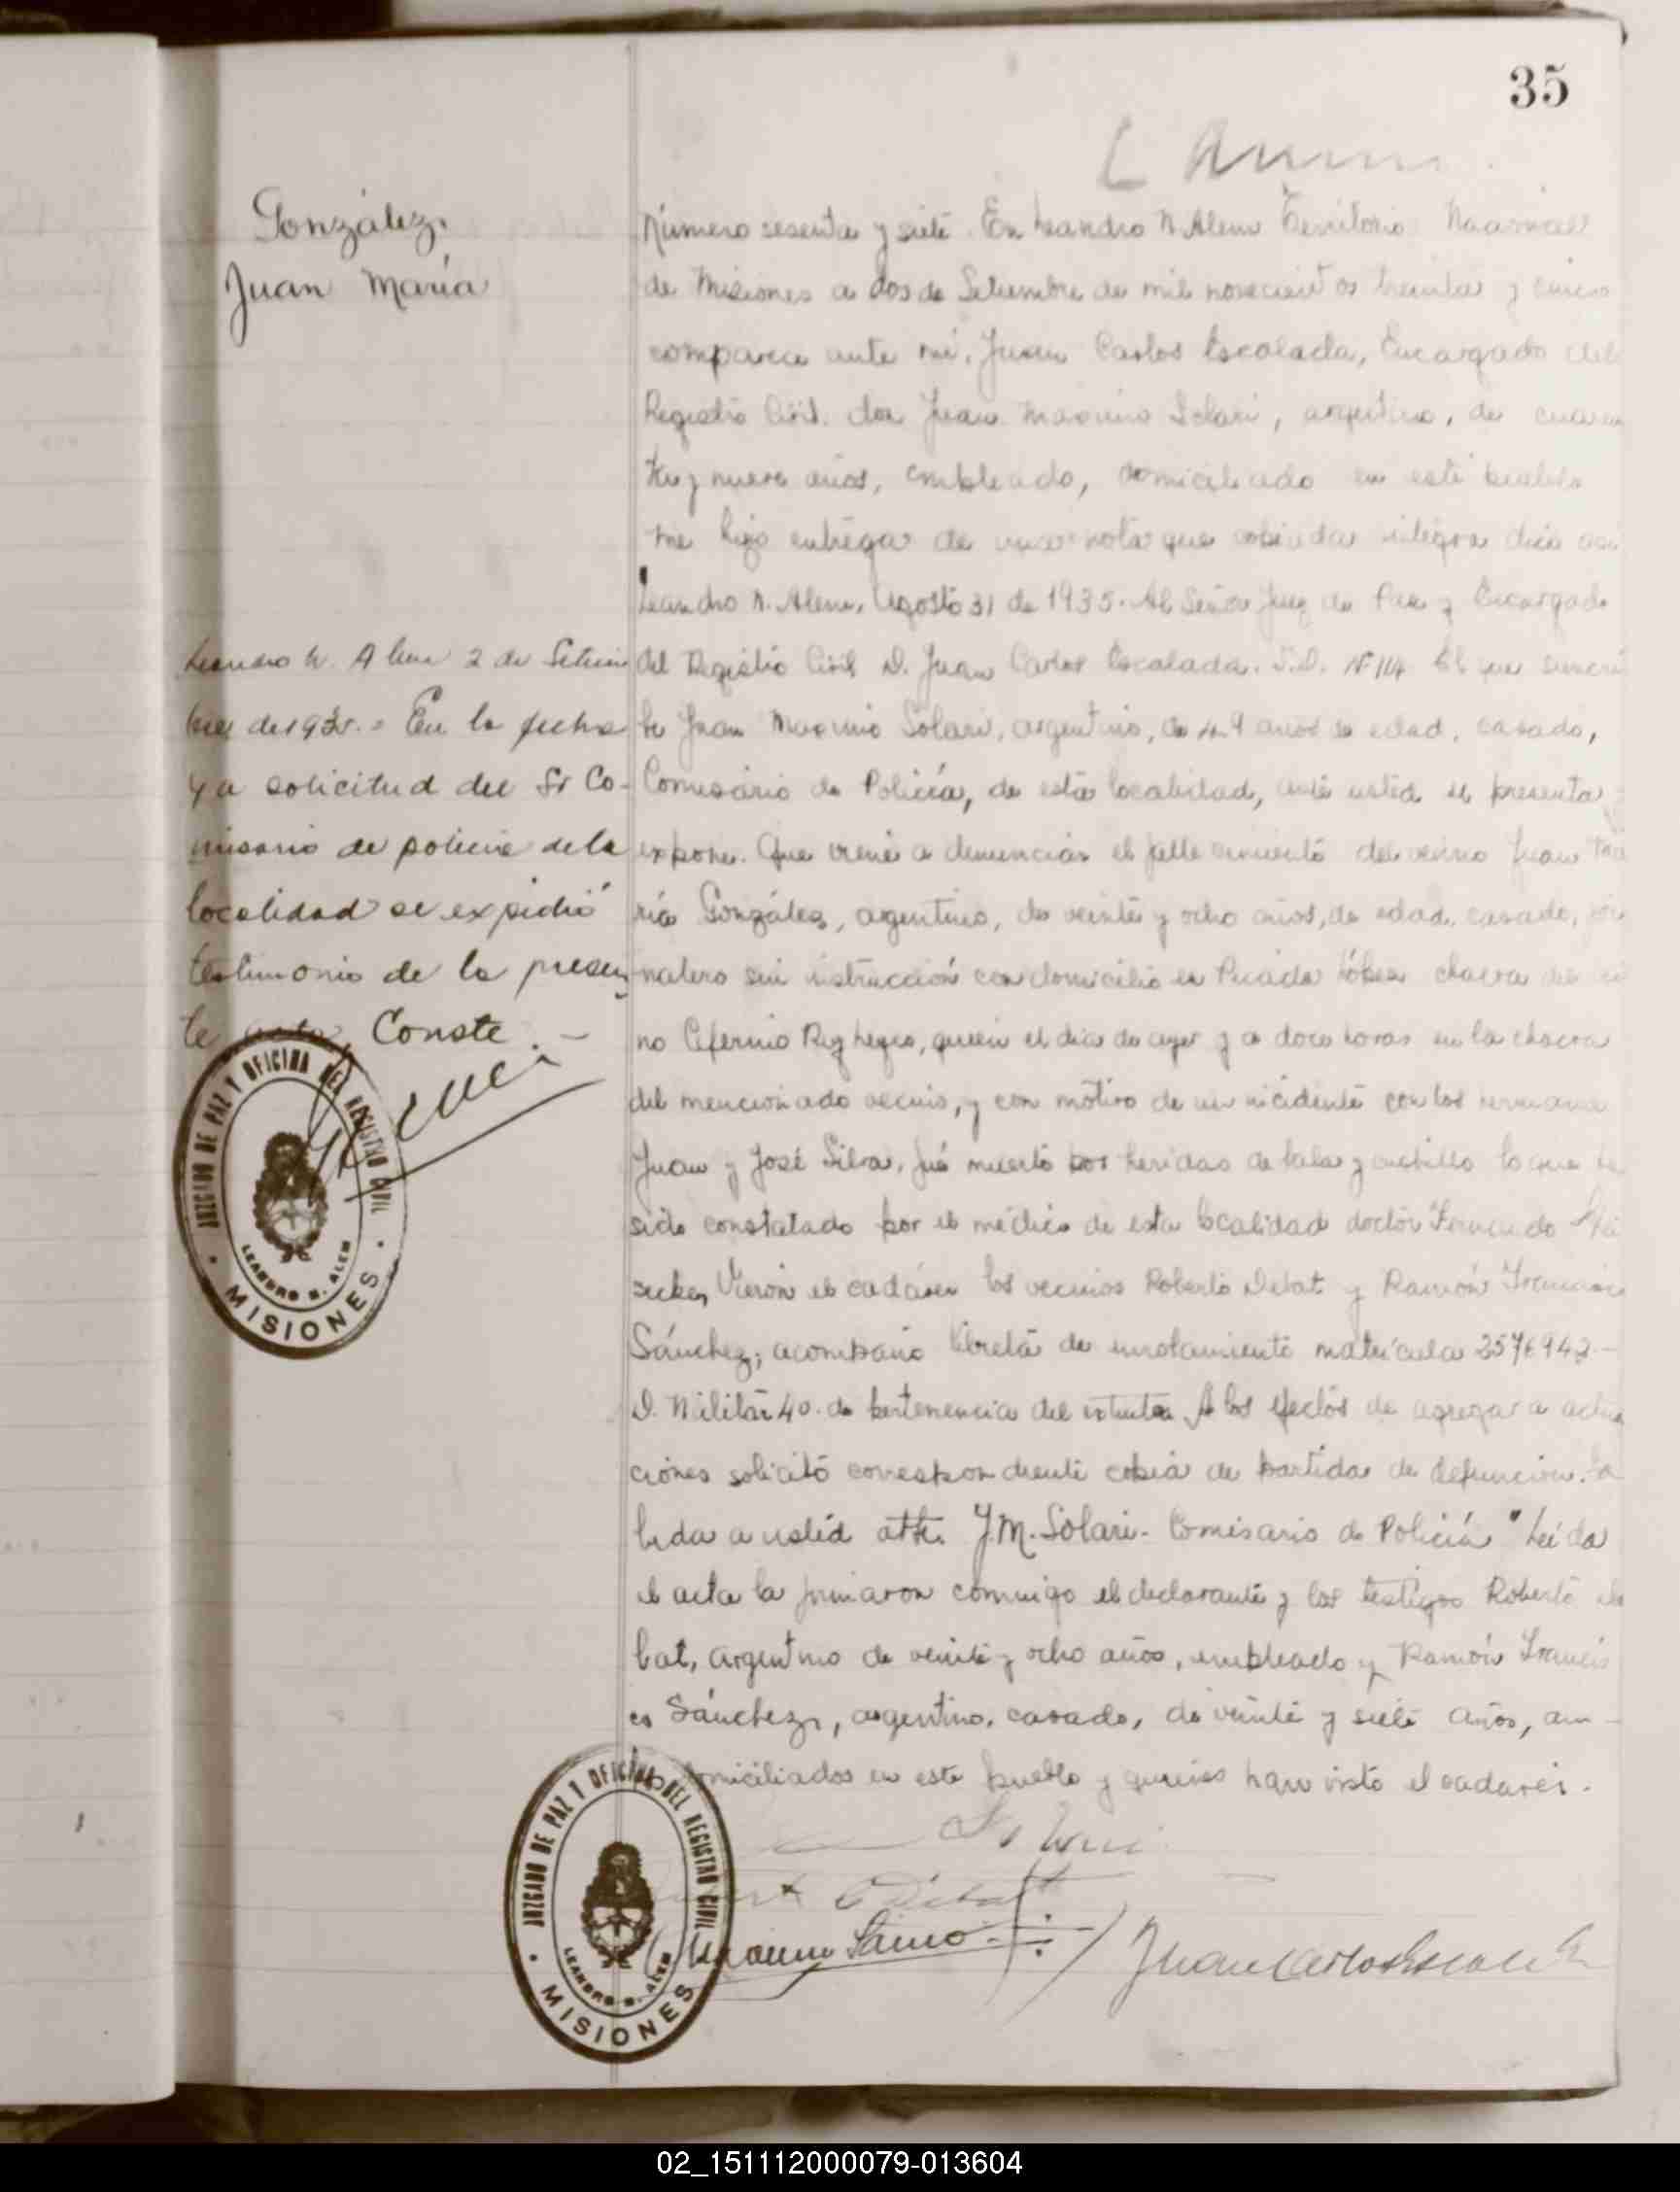 35
González,
Juan María
Número sesenta y siete. En Leandro N. Alem Territorio Nacional
de Misiones a dos de Setiembre de mil novecientos treinta y cinco
comparece ante mí, Juan Carlos Escalada, Encargado del
Registro Civil. don Juan Maximo Solari, argentino, de cuaren
ta y nueve años, empleado, domiciliado en este pueblo
me hizo entrega de una nota que copiada integra dice asi
Leandro N. Alem, Agosto 31 de 1935. Al Señor Juez de Paz y Encargado
del Registro Civil D. Juan Carlos Escalada. S.D. Nº 114 El que suscri
be Juan Maximo Solari, argentino, de 49 años de edad, casado,
Comisario de Policía, de esta localidad, ante usted se presenta y
expone. Que viene a denunciar el fallecimiento del vecino Juan Ma
ría González, argentino, de veinte y ocho años, de edad, casado, jor
nalero sin instrucción con domicilio en Picada López chacra del veci
no Ceferino, quien el dia de ayer y a doce horas en la chacra
del mencionado vecino, y con motivo de un incidente con los hermanos
Juan y José Silva, fué muerto por heridas de bala y cuchillo lo que ha
sido constatado por el médico de esta localidad doctor Fernando
Vieron el cadáver los vecinos Roberto Debat y Ramón Francisco
Sánchez; acompaño libreta de enrolamiento matrícula 2576942.-
D. Militar 40. de pertenencia del extinto. A los efectos de agregar a actua
ciones solicitó correspondiente copia de partida de defunción. Sa
luda a usted atte. J.M. Solari- Comisario de Policía" Leída
el acta la firmaron conmigo el declarante y los testigos Roberto De
bat, argentino de veinte y ocho años, empleado y Ramón Francis
co Sánchez, argentino, casado, de veinte y siete años, am-
domiciliados en este pueblo y quienes han visto el cadaver.
Leandro N. Alem 2 de Setiem
bre de 1935.= En la fecha
y a solicitud del Sr Co-
misario de policia de la
localidad se expidió
testimonio de la presen
te acta, Conste.-
JUZGADO DE PAZ Y OFICINA DEL REGISTRO CIVIL
LEANDRO N. ALEM
MISIONES
JUZGADO DE PAZ Y OFICINA DEL REGISTRO CIVIL
LEANDRO N. ALEM
MISIONES
Juan Carlos Escalada
02_151112000079-013604